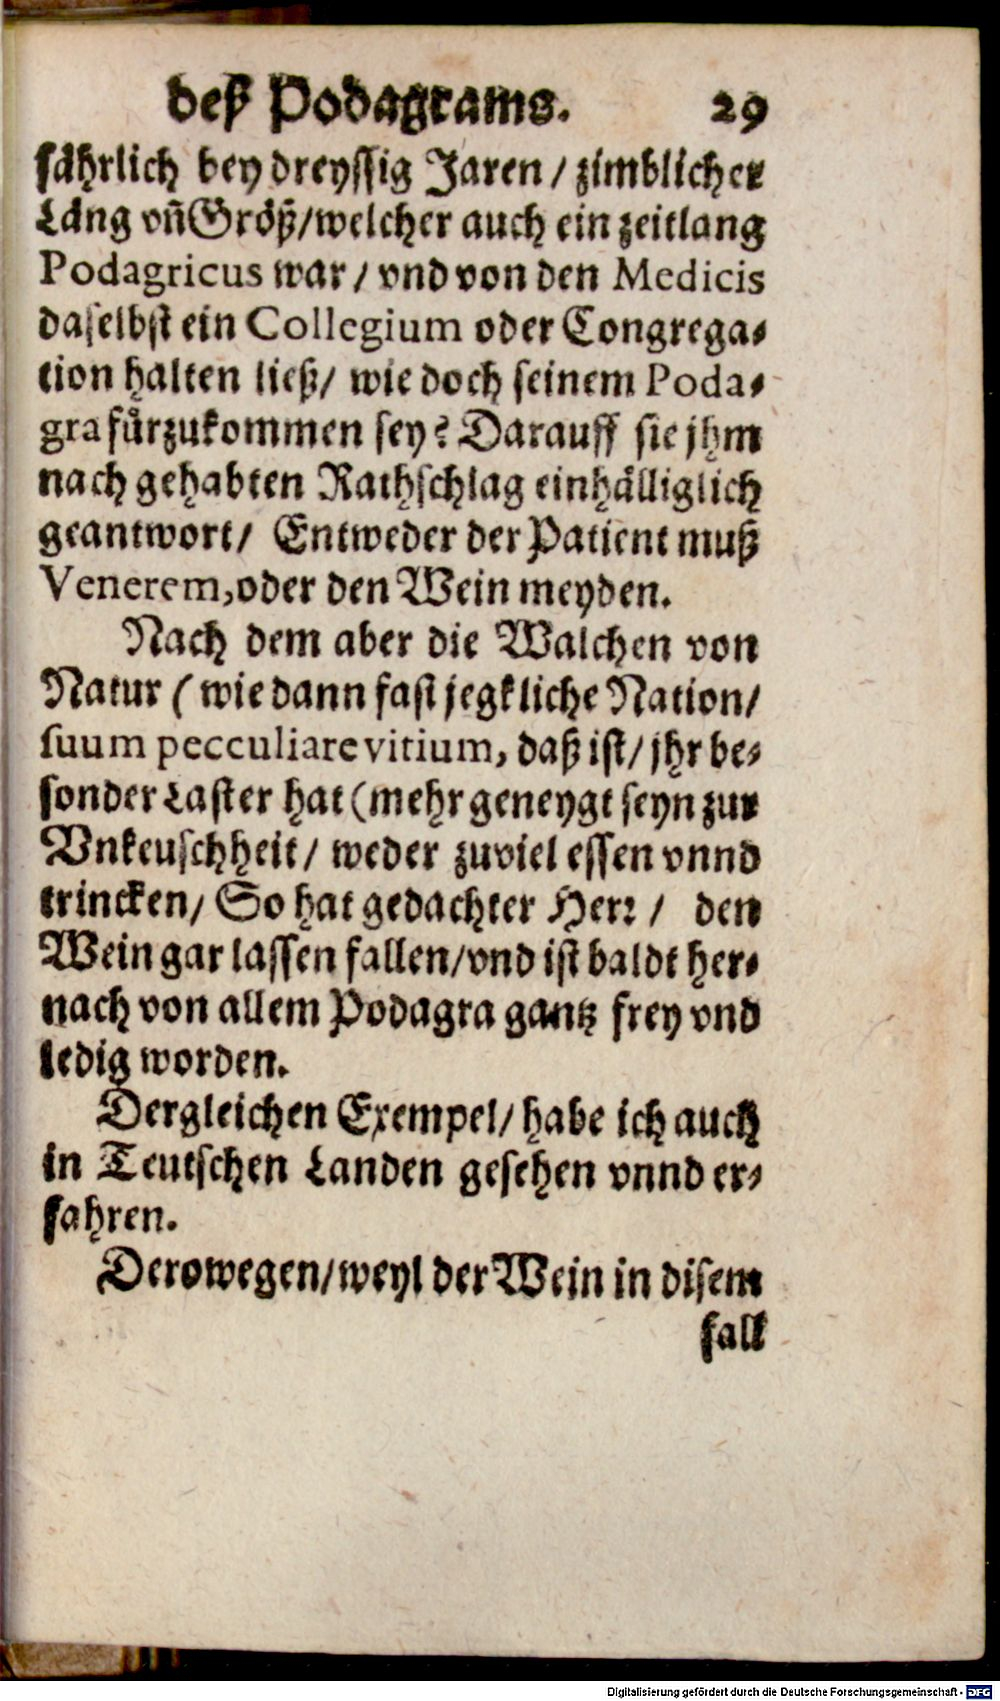 deß Podagrams. 29
fährlich bey dreyssig Jaren / zimblicher
Läng vn̄ Größ/welcher auch ein zeitlang
Podagricus war / vnd von den Medicis
daselbst ein Collegium oder Congrega-
tion halten ließ/ wie doch seinem Poda-
gra fürzukommen sey? Darauff sie jhm
nach gehabten Rathschlag einhälliglich
geantwort/ Entweder der Patient muß
Venerem, oder den Wein meyden.
Nach dem aber die Walchen von
Natur ( wie dann fast jegkliche Nation/
suum pecculiare vitium, daß ist/ jhr be-
sonder Laster hat ( mehr geneygt seyn zur
Vnkeuschheit/ weder zuviel essen vnnd
trincken/ So hat gedachter Herr / den
Wein gar lassen fallen/vnd ist baldt her-
nach von allem Podagra gantz frey vnd
ledig worden.
Dergleichen Exempel/ habe ich auch
in Teutschen Landen gesehen vnnd er-
fahren.
Derowegen/weyl der Wein in disem
fall
Digitalisierung gefördert durch die Deutsche Forschungsgemeinschaft - DFG